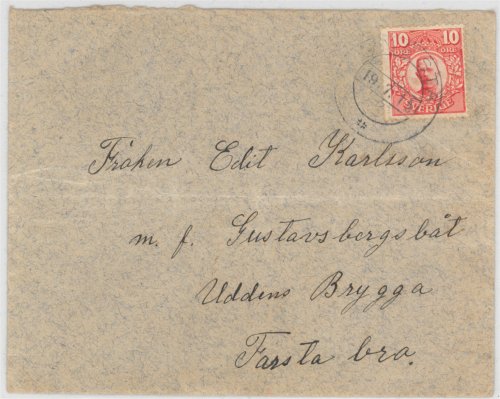 10 10
ÖRE ÖRE
SVERIGE
Fröken Edit Karlsson
m. f. Gustavsbergsbåt
Uddens Brygga
Farsta bro.